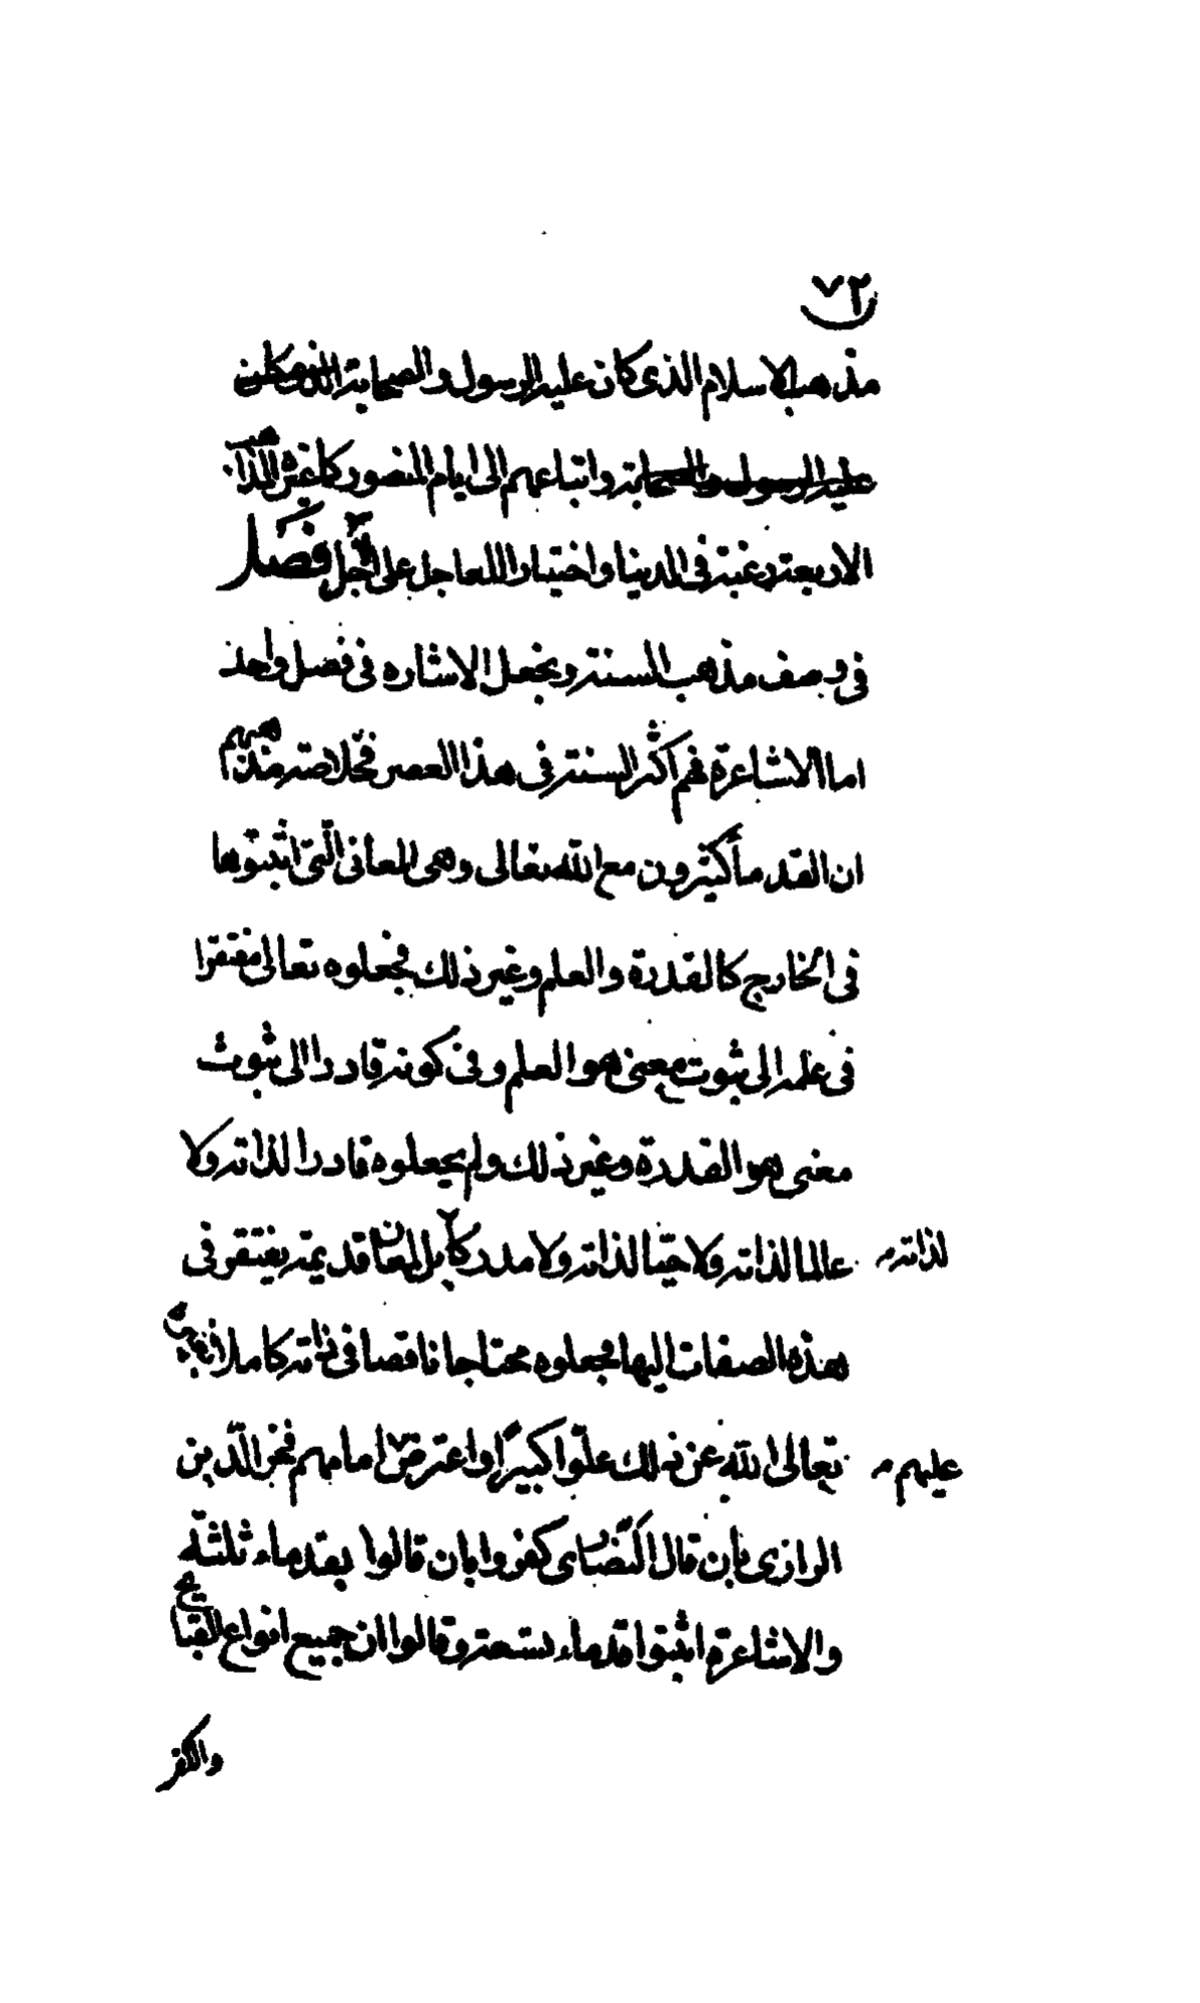 ٧٢
مذهب الاسلام الذى كان عليه الرسول والصحابة الذى كان
عليه الرسول والصحابة واتباعهم الى ايام المنصور كاغير المذاهب
الاربعة رغبة فى الدنيا واختيارا للعاجل على الآجل فصل
فى وصف مذهب السنة ونجعل الاشاره فى فصل واحد
اما الاشاعرة فهم اكثر السنة فى هذا العصر فخلاصة مذهبهم
ان القدماء كثيرون مع الله تعالى وهى المعانى التى اثبتوها
فى الخارج كالقدرة والعلم وغير ذلك فجعلوه تعالى مفتقرا
فى علمه الى ثبوت معنى هو العلم وفى كونه قادرا الى ثبوت
معنى هو القدرة وغير ذلك ولم يجعلوه قادرا لذاته ولا
عالما لذاته ولا حيّا لذاته ولا مدركا بل لمعان قديمة يفتقر فى
لذاته
هذه الصفات اليها فجعلوه محتاجا ناقصا فى ذاته كاملا بغيره
تعالى الله عن ذلك علوّا كبيرًا واعترض امامهم فخر الدّين
عليهم
الرازى بأن قال النّصارى كفروا بان قالوا بقدماء ثلثة
والاشاعرة اثبتوا قدماء تسعة وقالوا ان جميع انواع القبايح
والكفر